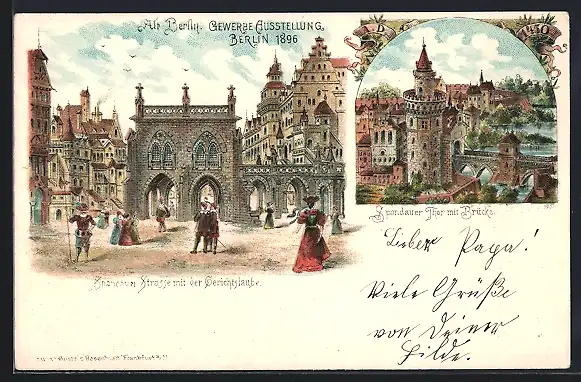 Alt Berlin. GEWERBE AUSSTELLUNG,
BERLIN 1896
A. D. 1430
Spandauer Strasse mit der Gerichtslaube.
Spandauer Thor mit Brücke.
Lieber Papa!
Viele Grüße
von Deiner
Hilde.
Rosenblatt Frankfurt a/M